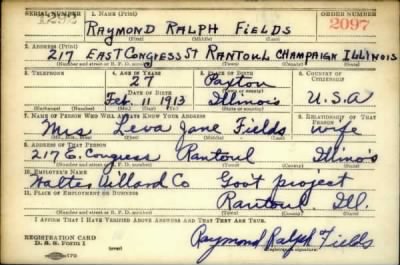 SERIAL NUMBER 1. NAME (Print) ORDER NUMBER
RAYMOND RALPH FIELDS 2097
(First) (Middle) (Last)
2. ADDRESS (Print)
217 EAST CONGRESS ST RANTOUL CHAMPAIGN ILLINOIS
(Number and street or R. F. D. number) (Town) (County) (State)
3. TELEPHONE 4. AGE IN YEARS 5. PLACE OF BIRTH 6. COUNTRY OF CITIZENSHIP
27 Paxton
DATE OF BIRTH (Town or county)
Feb. 11 1913 Illinois U.S.A
(Exchange) (Number) (Mo.) (Day) (Yr.) (State or country)
7. NAME OF PERSON WHO WILL ALWAYS KNOW YOUR ADDRESS 8. RELATIONSHIP OF THAT PERSON
Mrs Leva Jane Fields wife
(Mr., Mrs., Miss) (First) (Middle) (Last)
9. ADDRESS OF THAT PERSON
217 E. Congress Rantoul Illinois
(Number and street or R. F. D. number) (Town) (County) (State)
10. EMPLOYER'S NAME
Walter Willard Co Govt project
11. PLACE OF EMPLOYMENT OR BUSINESS
Rantoul Ill.
(Number and street or R. F. D. number) (Town) (County) (State)
I AFFIRM THAT I HAVE VERIFIED ABOVE ANSWERS AND THAT THEY ARE TRUE.
REGISTRATION CARD
D. S. S. Form 1 Raymond Ralph Fields
(Registrant's signature)